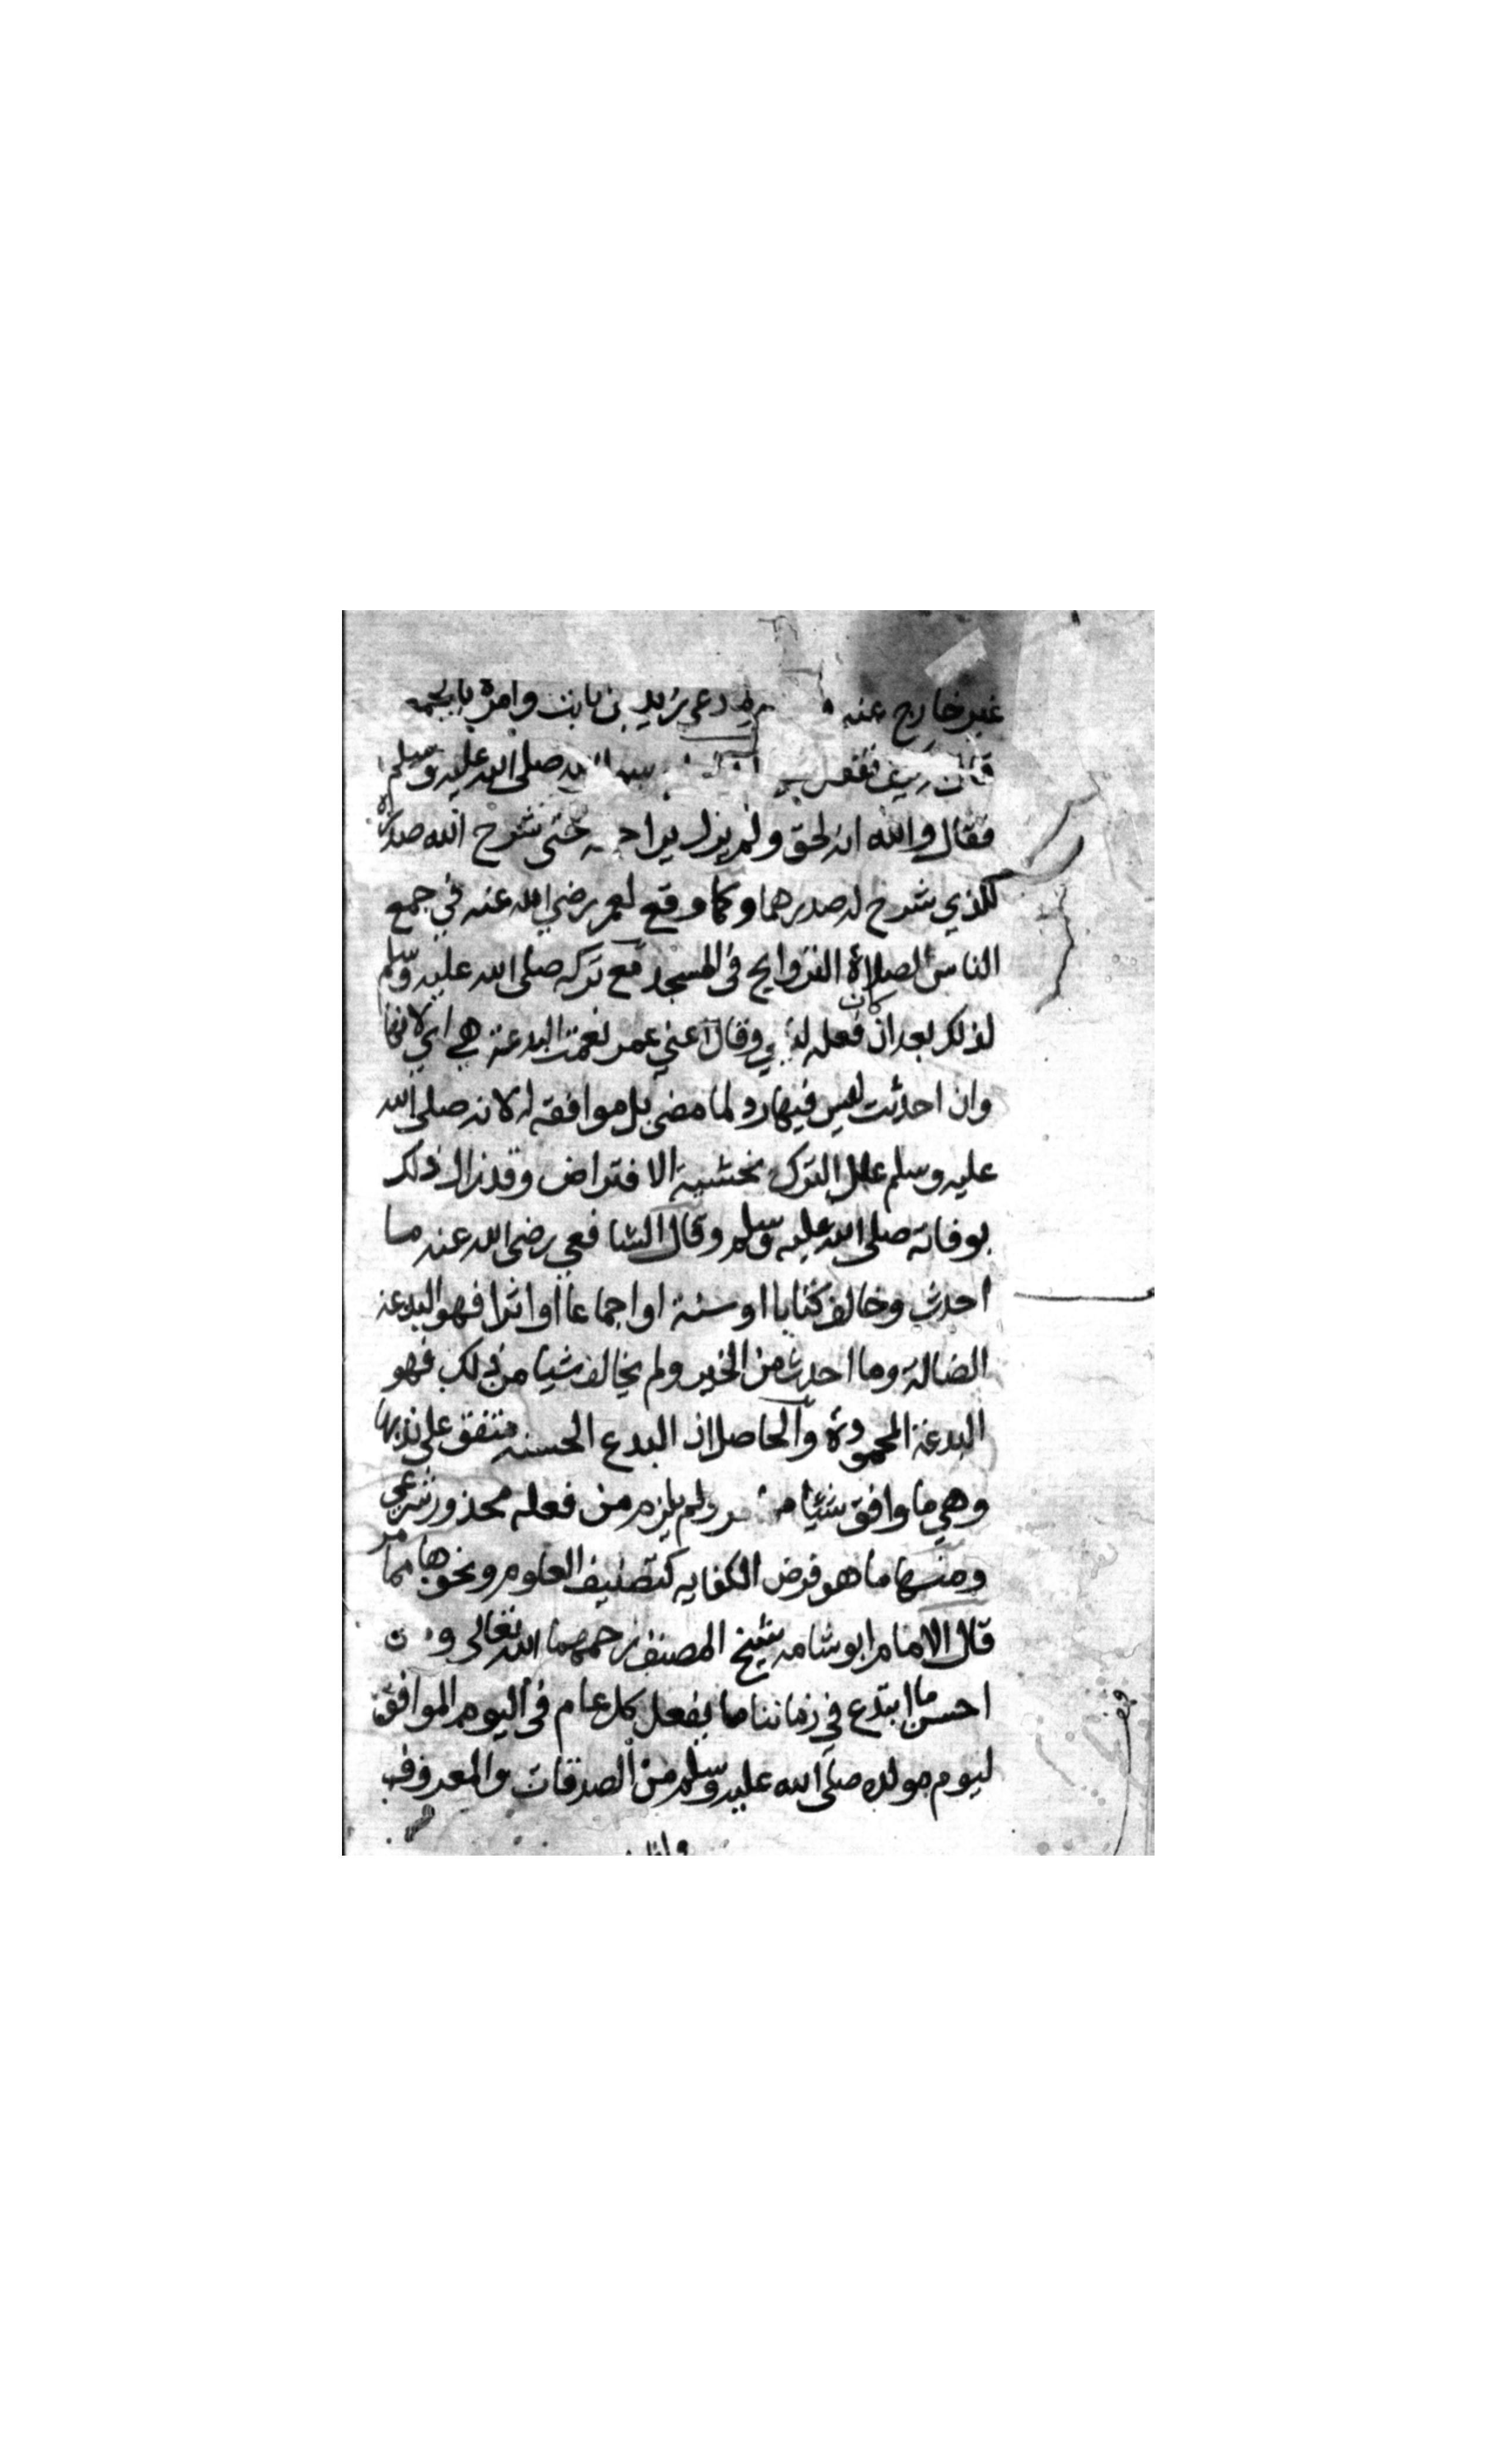 غير خارج عنه دعى زيد بن ثابت وامره بالجمع
فقال كيف تفعل صلى الله عليه وسلم
فقال والله انه لحق ولم يزل يراجعه حتى شرح الله صدره
للذي شرح له صدرهما وكما وقع لعمر رضي الله عنه في جمع
الناس لصلاة التراويح في المسجد مع تركه صلى الله عليه وسلم
لذلك بعد ان كان فعله وقال اعني عمر نعمت البدعة هي اي لانها
وان احدثت ليس فيها رد لما مضى بل موافقة له لانه صلى الله
عليه وسلم علل الترك بخشية الافتراض وقد زال ذلك
بوفاته صلى الله عليه وسلم وقال الشافعي رضي الله عنه ما
احدث وخالف كتابا او سنة او اجماعا او اثرا فهو البدعة
الضالة وما احدث من الخير ولم يخالف شيا من ذلك فهو
البدعة المحمودة والحاصل ان البدع الحسنه متفق على ندبها
وهي ما وافق شيئا مما مر ولم يلزم من فعله محذور شرعي
ومنها ما هو فرض الكفايه كتصنيف العلوم ونحوها مما مر
قال الامام ابو شامه شيخ المصنف رحمهما الله تعالى ومن
احسن ما ابتدع في زماننا ما يفعل كل عام في اليوم الموافق
ليوم مولده صلى الله عليه وسلم من الصدقات والمعروف